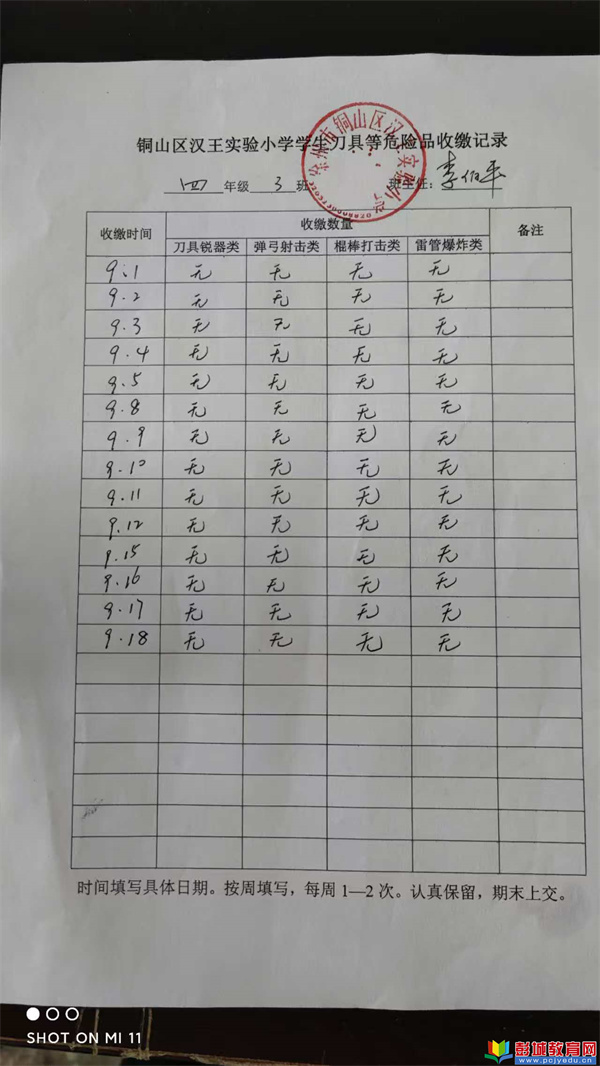 铜山区汉王实验小学学生刀具等危险品收缴记录
四 年级 3 班 班主任:李伯平
收缴时间 收缴数量 备注
刀具锐器类 弹弓射击类 棍棒打击类 雷管爆炸类
9.1 无 无 无 无
9.2 无 无 无 无
9.3 无 无 无 无
9.4 无 无 无 无
9.5 无 无 无 无
9.8 无 无 无 无
9.9 无 无 无 无
9.10 无 无 无 无
9.11 无 无 无 无
9.12 无 无 无 无
9.15 无 无 无 无
9.16 无 无 无 无
9.17 无 无 无 无
9.18 无 无 无 无
时间填写具体日期。按周填写,每周1—2次。认真保留,期末上交。
SHOT ON MI 11
彭城教育网
www.pcjyw.com